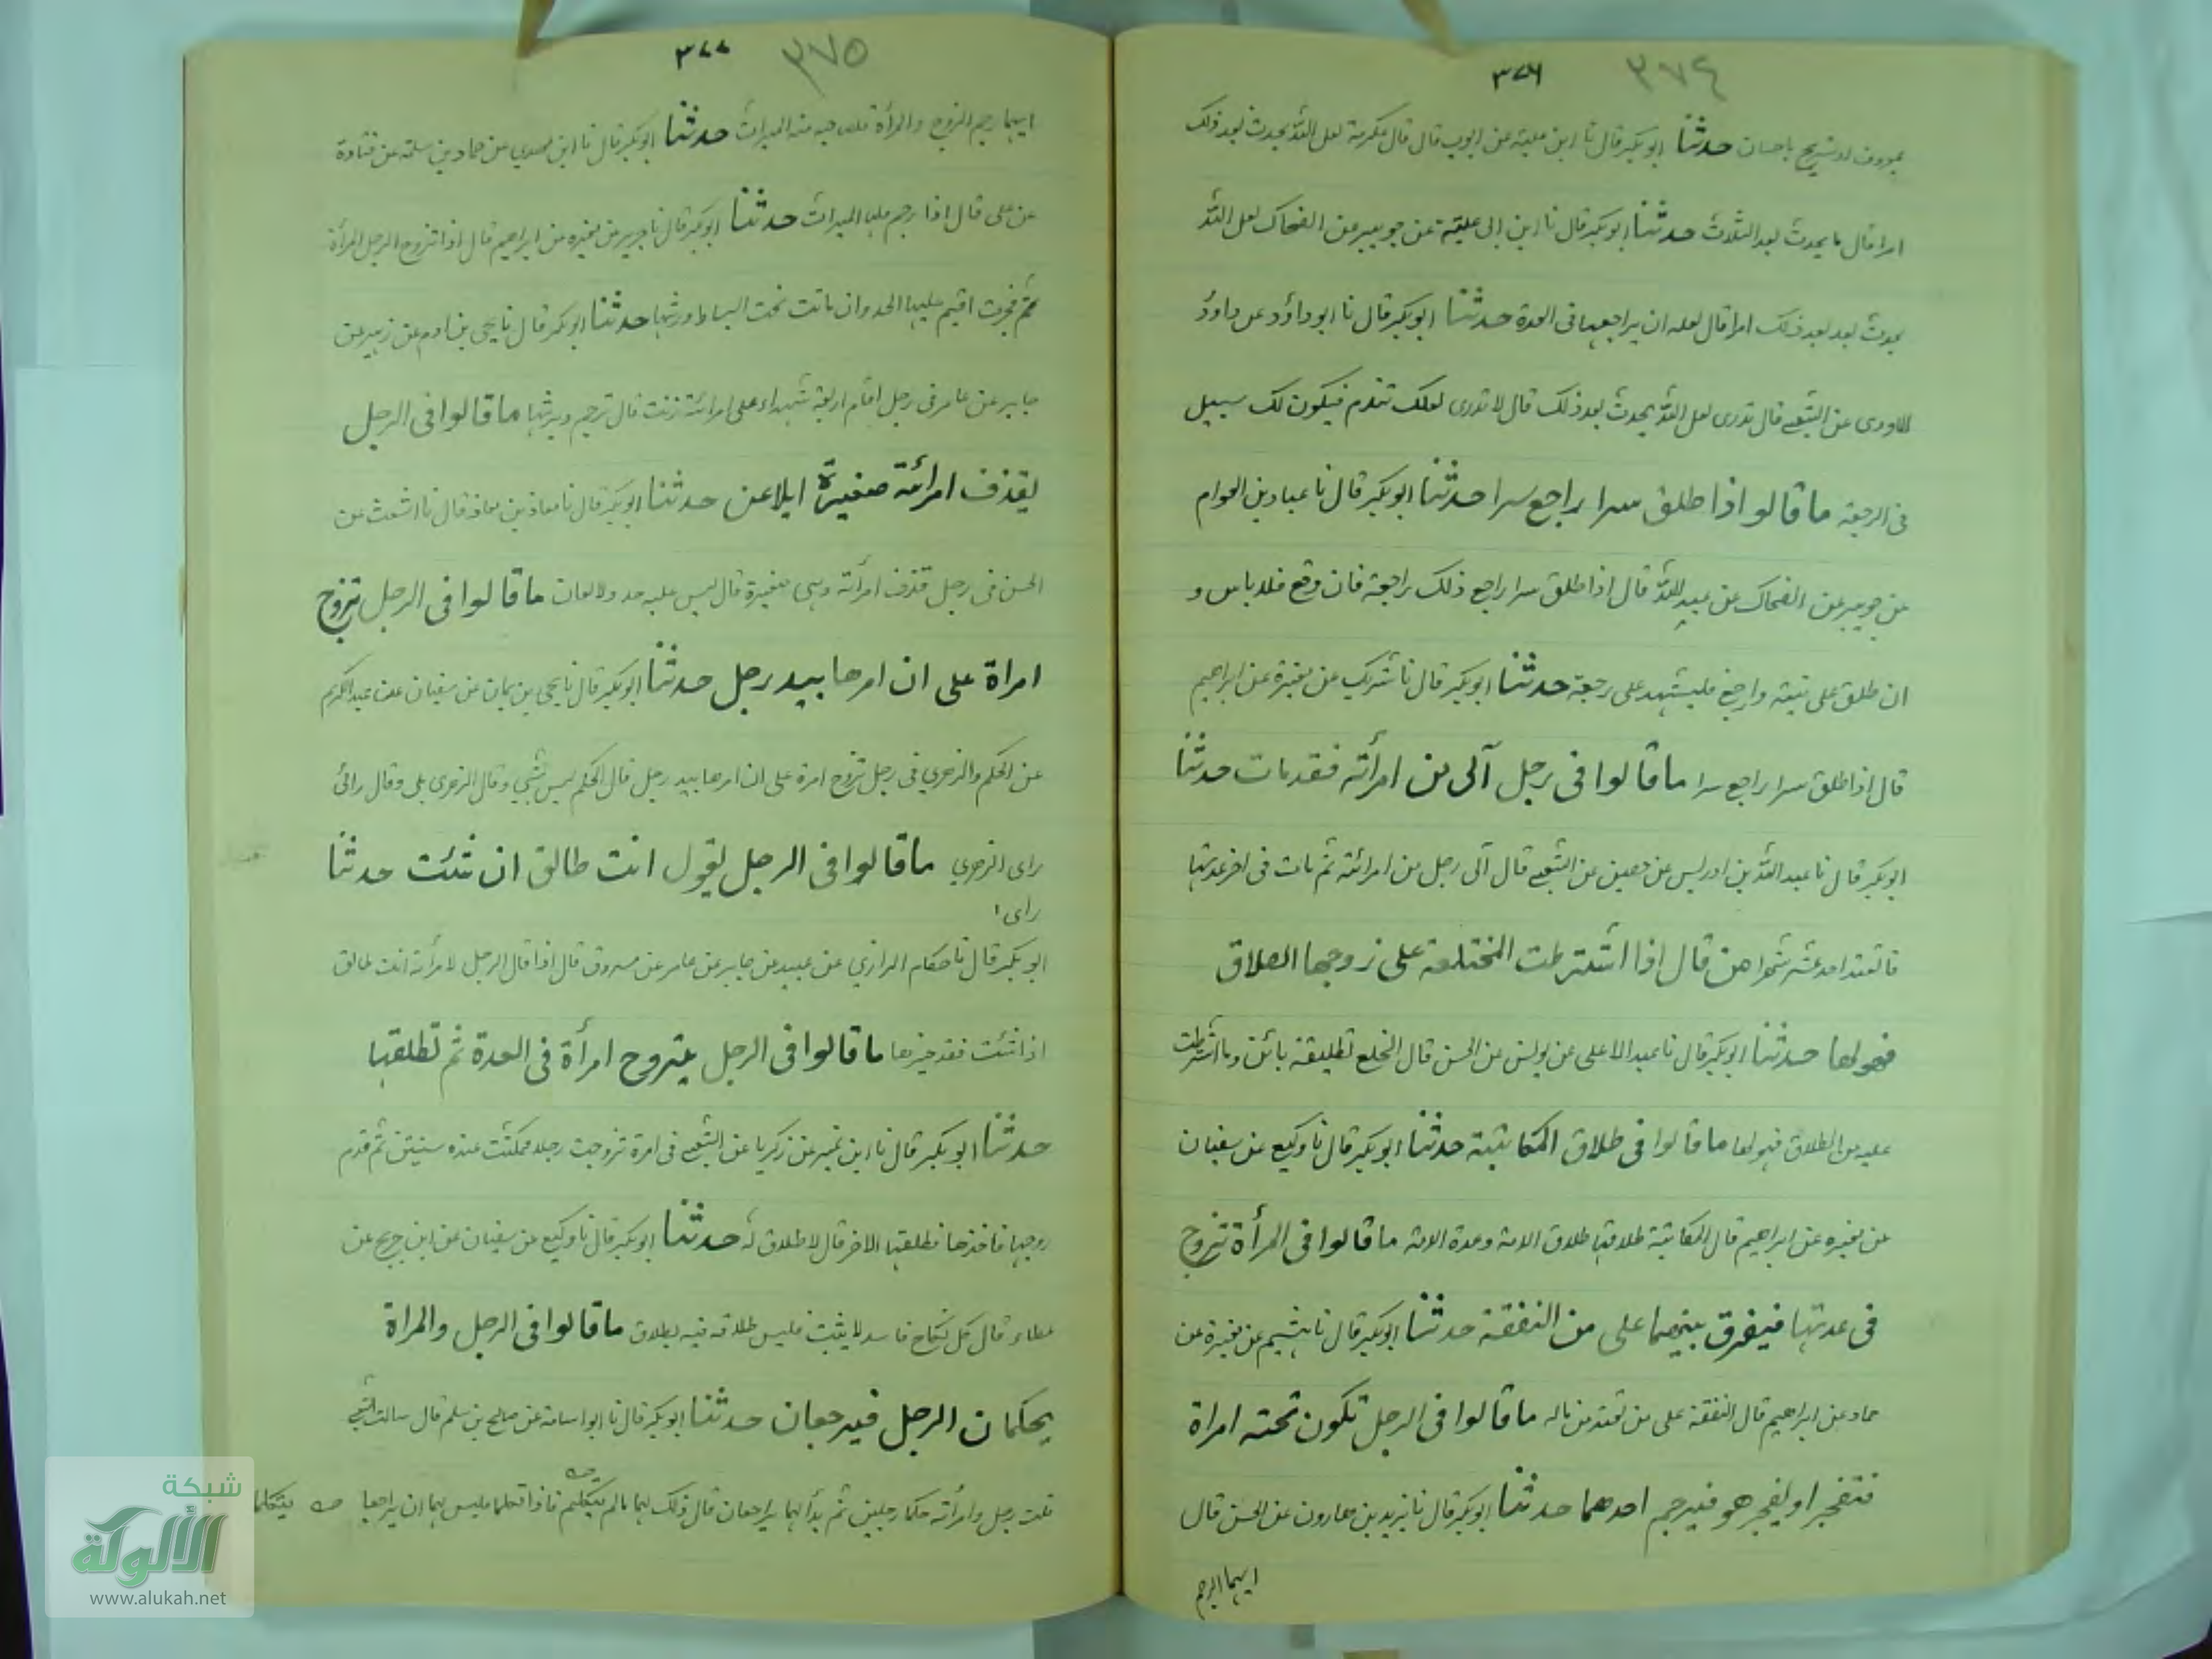 ٣٧٦ ٣٧٤
بمعروف او تسريح باحسان حدثنا ابو بكر قال نا ابن علية عن ايوب قال قال عكرمة لعل الله يحدث بعد ذلك
امرا قال ما يحدث بعد الثلاث حدثنا ابو بكر قال نا ابن ابى علية عن جويبر عن الضحاك لعل الله
يحدث بعد بعد ذلك امرا قال لعله ان يراجعها فى العدة حدثنا ابو بكر قال نا ابو داؤد عن داود
الاودى عن الشعبے قال تدرى لعل الله يحدث بعد ذلك قال لا تدرى لعلك تندم فيكون لك سبيل
فى الرجعة ما قالوا اذا طلق سرا راجع سرا حدثنا ابو بكر قال نا عباد بن العوام
عن جويبر عن الضحاك عن عبد الله قال اذا طلق سرا راجع ذلك رجعة فان وقع فلا باس و
ان طلق على نيته وارجع فليشهد على رجعة حدثنا ابو بكر قال نا شريك عن مغيرة عن ابراهيم
قال اذا طلق سرا راجع سرا ما قالوا فى رجل آلى من امرأته فقد مات حدثنا
ابو بكر قال نا عبد الله بن ادريس عن حصين عن الشعبے قال آلى رجل من امرائته ثم مات فى اخر عدتها
فا تعتد احد عشر شهرا من قال اذا اشترطت المختلعة على زوجها الطلاق
فهو لها حدثنا ابو بكر قال نا عبد الاعلى عن يونس عن الحسن قال الخلع تطليقة بائن وما اشترطت
عليه من الطلاق فهو لها ما قالوا فى طلاق المكاتبة حدثنا ابو بكر قال نا وكيع عن سفيان
عن مغيره عن ابراهيم قال المكاتبة طلاقها طلاق الامة وعدة الامة ما قالوا فى المرأة تزوج
فى عدتها فيفرق بينهما على من النفقة حدثنا ابو بكر قال نا هشيم عن مغيرة عن
حماد عن ابراهيم قال النفقة على من تعتد من ماله ما قالوا فى الرجل تكون تحته امراة
فتفجر او يفجر هو فيرجم احدهما حدثنا ابو بكر قال نا يزيد بن هارون عن الحسن قال
ايهما الرجم
٣٧٧ ٣٧٥
ايهما رجم الزوج والمرأة فلصاحبه منه الميراث حدثنا ابو بكر قال نا ابن مهدي عن حماد بن سلمة عن قتادة
عن على قال اذا رجم فلها الميراث حدثنا ابو بكر قال نا جرير عن مغيره عن ابراهيم قال اذا تزوج الرجل المرأة
ثم فجرت اقيم عليها الحد وان ماتت تحت السياط ورثها حدثنا ابو بكر قال نا يحى بن ادم عن زهير عن
جابر عن عامر فى رجل اقام اربعة شهداء على امرائته زنت قال ترجم ويرثها ما قالوا فى الرجل
يقذف امرائته صغيرة ايلاعن حدثنا ابو بكر قال نا معاذ بن معاذ قال نا اشعث عن
الحسن فى رجل قذف امرأته وهى صغيرة قال ليس عليه حد ولا لعان ما قالوا فى الرجل تزوج
امراة على ان امرها بيد رجل حدثنا ابو بكر قال نا يحى بن يمان عن سفيان عن عبد الكريم
عن الحكم والزهري فى رجل تزوج امرة على ان امرها بيد رجل قال الحكم ليس بشئ وقال الزهرى بلى وقال رائى
راى الزهري ما قالوا فى الرجل يقول انت طالق ان شئت حدثنا
راى ١
ابو بكر قال نا حكام الرازي عن عبيد عن جابر عن عامر عن مسروق قال اذا قال الرجل لامرأته انت طالق
اذا شئت فقد خيرها ما قالوا فى الرجل يتزوج امرأة فى العدة ثم تطلقها
حدثنا ابو بكر قال نا ابن نمير عن زكريا عن الشعبى فى امرة تزوجت رجلا فمكثت عنده سنيتين ثم قدم
زوجها فاخذها فطلقها الاخر قال لا طلاق له حدثنا ابو بكر قال نا وكيع عن سفيان عن ابن جريج عن
عطاء قال كل نكاح فاسد لا يثبت فليس طلاقه فيه بطلاق ما قالوا فى الرجل والمراة
يحكمان الرجل فيرجعان حدثنا ابو بكر قال نا ابو اسامة عن صالح بن مسلم قال سالت الشعبى
قلت رجل وامرأته حكما رجلين ثم بدأ لهما يراجعان قال ذلك لهما ما لم يتكلم فاذا تكلما فليس لهما ان يراجعا يتكلما
شبكة
الألوكة
www.alukah.net